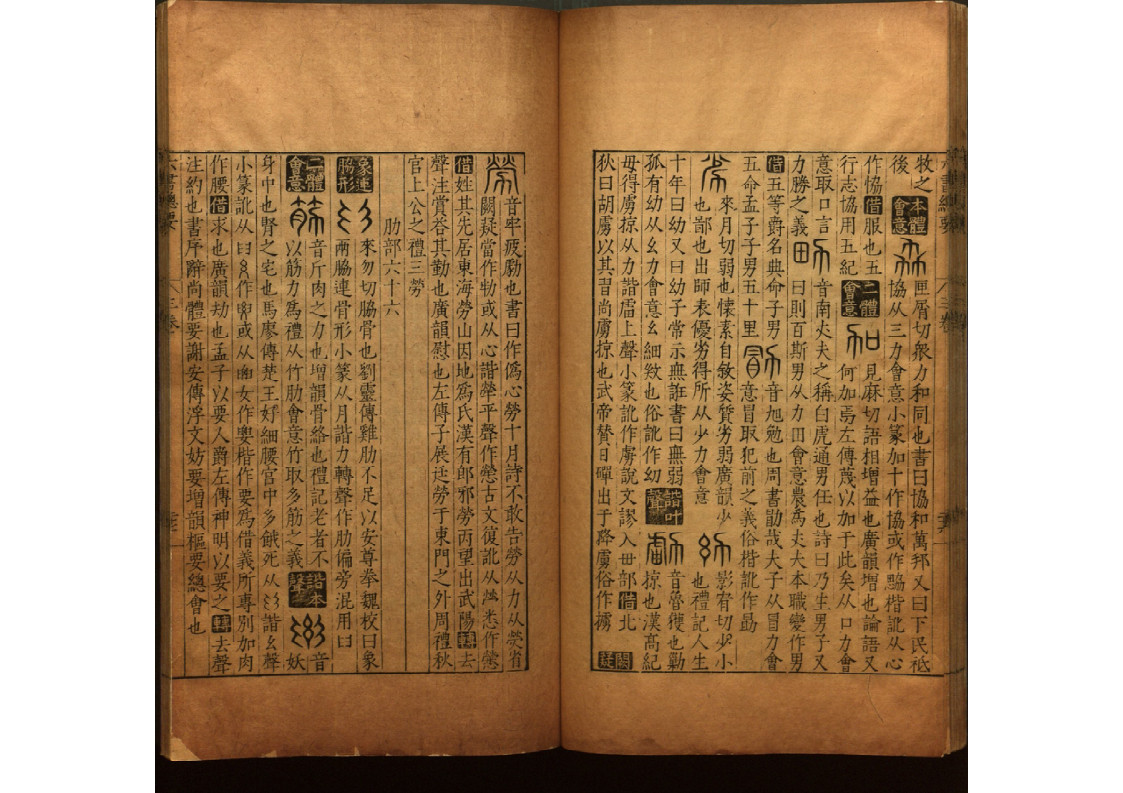 牧之
後 本體會意 匣屑切衆力和同也書曰協和萬邦又曰下民祗
協從三力會意小篆加十作協或作勰楷訛从心
作恊借服也五
行志協用五紀 二體會意 見麻切語相增益也廣韻增也論語又
何加焉左傳蔑以加于此矣从口力會
意取口言 音南夫夫之稱白虎通男任也詩曰乃生男子又
力勝之義 曰則百斯男从力田會意農爲夫夫本職變作男
借五等爵名典命子男
五命孟子子男五十里 音旭勉也周書勖哉夫子从冒力會
意冒取犯前之義俗楷訛作勗
來月切弱也懷素自敘姿質劣弱廣韻少
也鄙也出師表優劣得所从少力會意
影宥切少小
也禮記人生
十年曰幼又曰幼子常示無誑書曰無弱
孤有幼从幺力會意幺細㪏也俗訛作㓜 諧叶聲 音魯獲也勦
掠也漢高紀
毋得虜掠从力諧雷上聲小篆訛作虜說文謬入毌部借北
狄曰胡虜以其習尚虜掠也武帝贊日磾出于降虜俗作擄 闕疑
音牢疲勵也書曰作僞心勞十月詩不敢告勞从力从熒省
闕疑當作物或从心諧犖平聲作憥古文復訛从𤇾悉作憥
借姓其先居東海勞山因地爲氏漢有郎邪勞丙望出武陽轉去
聲注賞答其勤也廣韻慰也左傳子展廷勞于東門之外周禮秋
官上公之禮三勞
肋部六十六
象連脇形 來勿切脇骨也劉靈傳雞肋不足以安尊拳魏校曰象
兩脇連骨形小篆从月諧力轉聲作肋偏旁混用曰
二體會意 音斤肉之力也增韻骨絡也禮記老者不
以筋力爲禮从竹肋會意竹取多筋之義 諧本聲 音
妖
身中也腎之宅也馬廖傳楚王好細腰宮中多餓死从肋諧幺聲
小篆訛从臼
作腰借求也廣韻劫也孟子以要人爵左傳神明以要之轉去聲
注約也書序辭尚體要謝安傳浮文妨要增韻樞要總會也